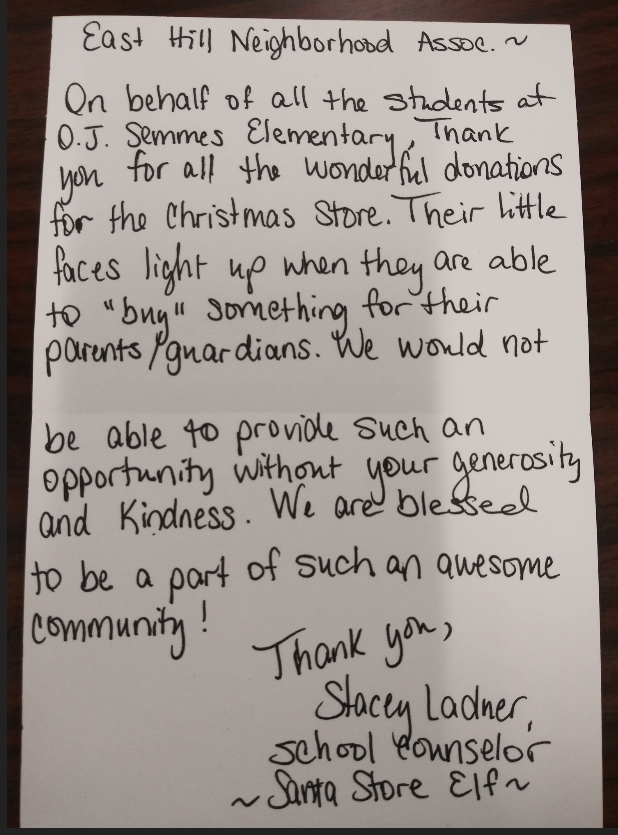 East Hill Neighborhood Assoc. ~
On behalf of all the students at
O.J. Semmes Elementary, Thank
you for all the wonderful donations
for the Christmas Store. Their little
faces light up when they are able
to "buy" something for their
parents/guardians. We would not
be able to provide such an
opportunity without your generosity
and Kindness. We are blessed
to be a part of such an awesome
community!
Thank you,
Stacey Ladner,
School Counselor
~ Santa Store Elf ~